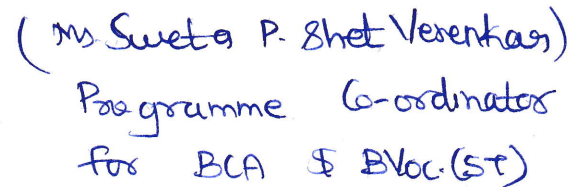 (Ms. Sweta P. Shet Verenkar)
Programme Co-ordinator
for BCA & BVoc.(ST)